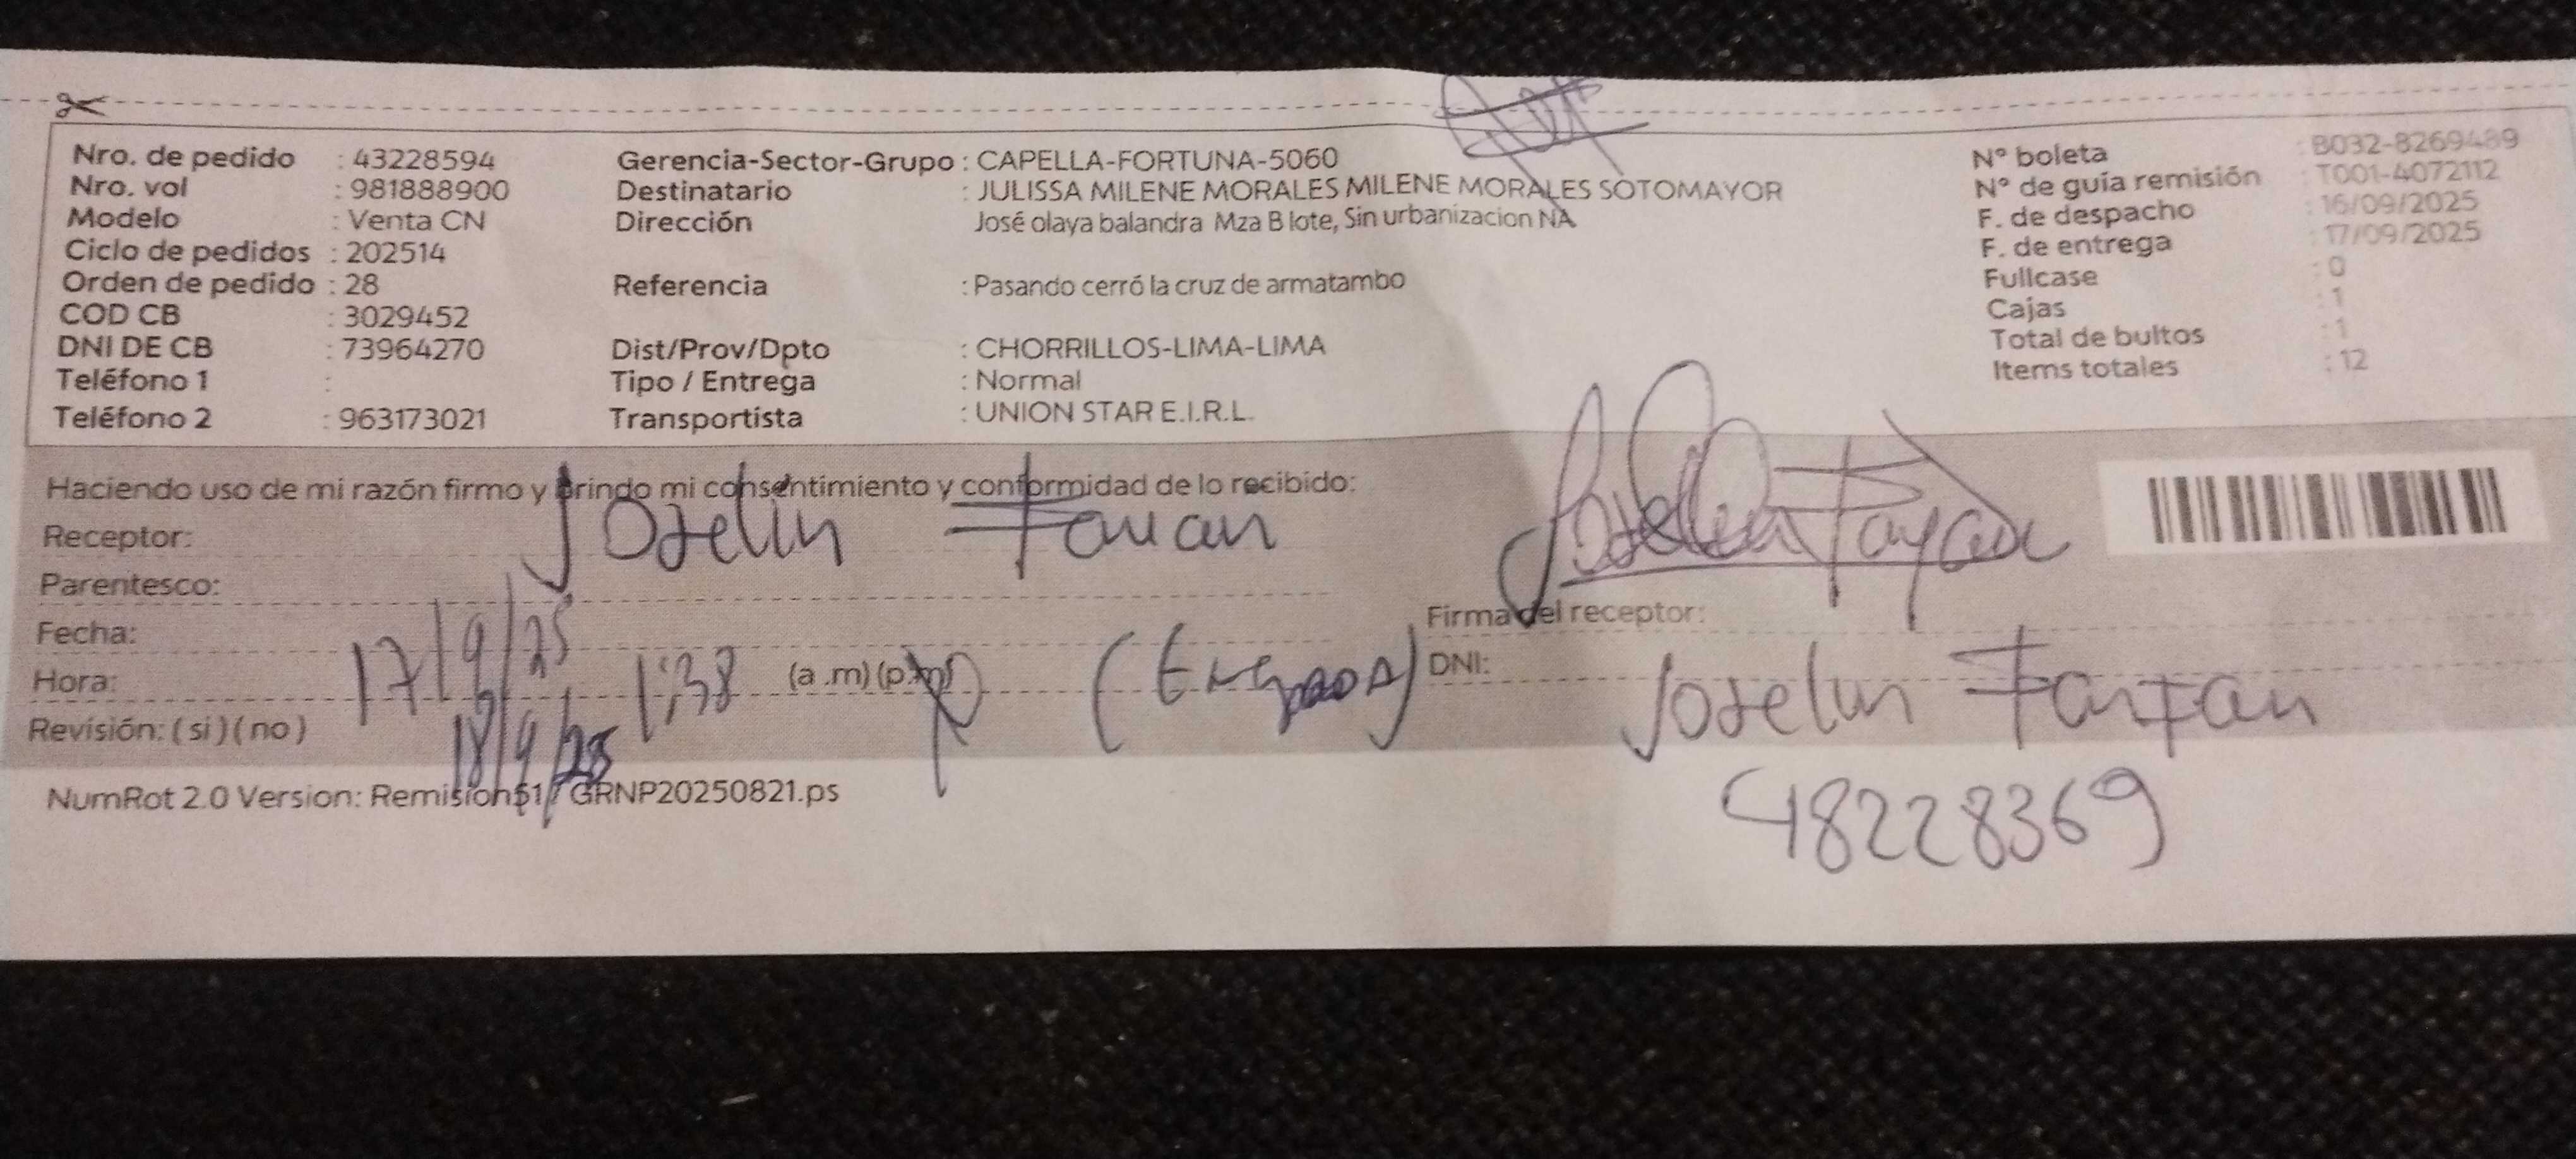 Nro. de pedido : 43228594
Nro. vol : 981888900
Modelo : Venta CN
Ciclo de pedidos : 202514
Orden de pedido : 28
COD CB : 3029452
DNI DE CB : 73964270
Teléfono 1 :
Teléfono 2 : 963173021
Gerencia-Sector-Grupo : CAPELLA-FORTUNA-5060
Destinatario : JULISSA MILENE MORALES MILENE MORALES SOTOMAYOR
Dirección José olaya balandra Mza B lote, Sin urbanizacion NA
Referencia : Pasando cerró la cruz de armatambo
Dist/Prov/Dpto : CHORRILLOS-LIMA-LIMA
Tipo / Entrega : Normal
Transportista : UNION STAR E.I.R.L.
N° boleta : B032-8269489
N° de guía remisión : T001-4072112
F. de despacho : 16/09/2025
F. de entrega : 17/09/2025
Fullcase : 0
Cajas : 1
Total de bultos : 1
Items totales : 12
Haciendo uso de mi razón firmo y brindo mi consentimiento y conformidad de lo recibido:
Receptor: Joselin
Parentesco:
Fecha: 17/9/25
Hora: 1:38 (a .m) (p.m)
18/9/25
Revisión: ( si ) ( no )
Firma del receptor:
DNI:
Joselin Farfan
48228369
NumRot 2.0 Version: Remision51 / GRNP20250821.ps